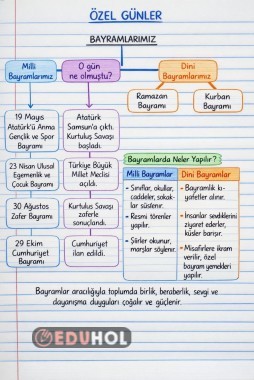 ÖZEL GÜNLER
BAYRAMLARIMIZ
Milli
Bayramlarımız
O gün
ne olmuştu?
Dini
Bayramlarımız
Ramazan
Bayramı
Kurban
Bayramı
19 Mayıs
Atatürk'ü Anma
Gençlik ve Spor
Bayramı
Atatürk
Samsun'a çıktı.
Kurtuluş Savaşı
başladı.
23 Nisan Ulusal
Egemenlik ve
Çocuk Bayramı
Türkiye Büyük
Millet Meclisi
açıldı.
30 Ağustos
Zafer Bayramı
Kurtuluş Savaşı
zaferle
sonuçlandı.
29 Ekim
Cumhuriyet
Bayramı
Cumhuriyet
ilan edildi.
Bayramlarda Neler Yapılır?
Milli Bayramlar
- Sınıflar, okullar,
caddeler, sokak-
lar süslenir.
- Resmi törenler
yapılır.
- Şiirler okunur,
marşlar söylenir.
Dini Bayramlar
- Bayramlık kı-
yafetler alınır.
- İnsanlar sevdiklerini
ziyaret ederler,
küsler barışır.
- Misafirlere ikram
verilir, özel
bayram yemekleri
yapılır.
Bayramlar aracılığıyla toplumda birlik, beraberlik, sevgi ve
dayanışma duyguları çoğalır ve güçlenir.
EDUHOL